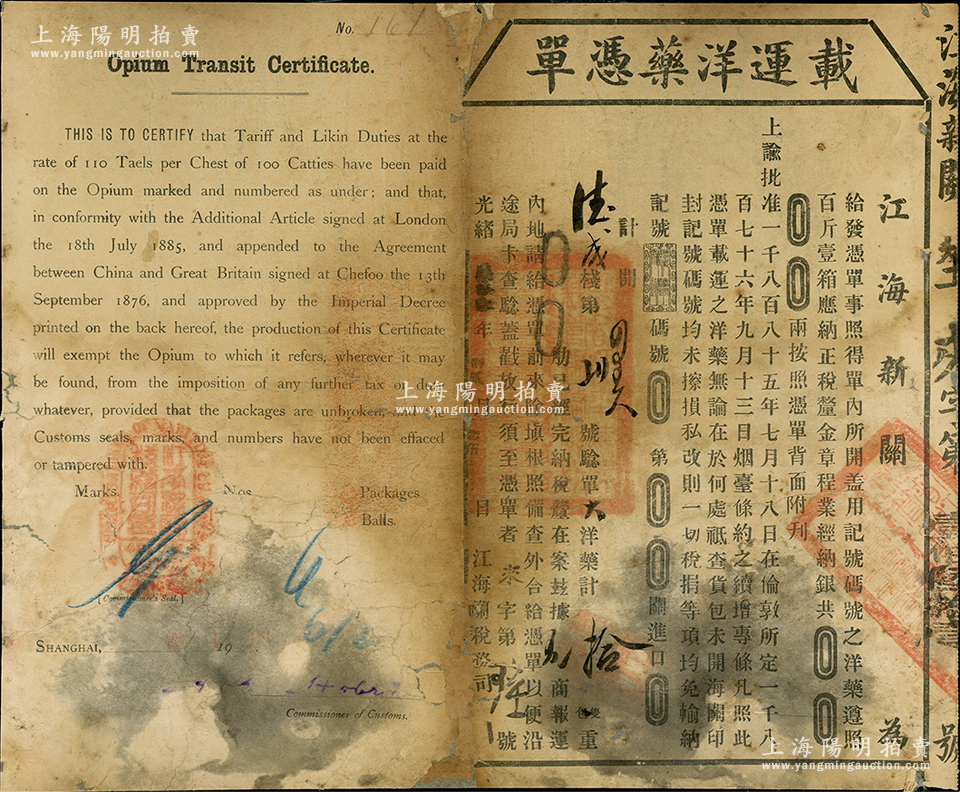 上海陽明拍賣
www.yangmingauction.com
No. 161
Opium Transit Certificate.
THIS IS TO CERTIFY that Tariff and Likin Duties at the
rate of 110 Taels per Chest of 100 Catties have been paid
on the Opium marked and numbered as under; and that,
in conformity with the Additional Article signed at London
the 18th July 1885, and appended to the Agreement
between China and Great Britain signed at Chefoo the 13th
September 1876, and approved by the Imperial Decree
printed on the back hereof, the production of this Certificate
will exempt the Opium to which it refers, wherever it may
be found, from the imposition of any further tax or duty
whatever, provided that the packages are unbroken
Customs seals, marks, and numbers have not been effaced
or tampered with.
Marks. Nos. Packages
Balls.
[Commissioner's Seal.]
SHANGHAI, 19
Commissioner of Customs.
上海陽明拍賣
www.yangmingauction.com
單憑藥洋運載
江海新關
第
號
江海新關為
給發憑單事照得單內所開盖用記號碼號之洋藥遵照
百斤壹箱應納正稅釐金章程業經納銀共
兩按照憑單背面附刊
上諭批准一千八百八十五年七月十八日在倫敦所定一千八
百七十六年九月十三日烟臺條約之續增專條凡照此
憑單載運之洋藥無論在於何處祗查貨包未開海關印
封記號碼號均未擦損私改則一切稅捐等項均免輸納
記號 碼號 第 關進口
計開
成棧第 號驗單 洋藥計 拾 重
完納稅釐在案茲據 商報運
內地請給憑單前來除填根照備查外合給憑單以便沿
途局卡查驗蓋戳放 須至憑單者 來字第 號
光緒 年 月 日 江海關稅務司
上海陽明拍賣
www.yangmingauction.com
上海陽明拍賣
www.yangmingauction.com